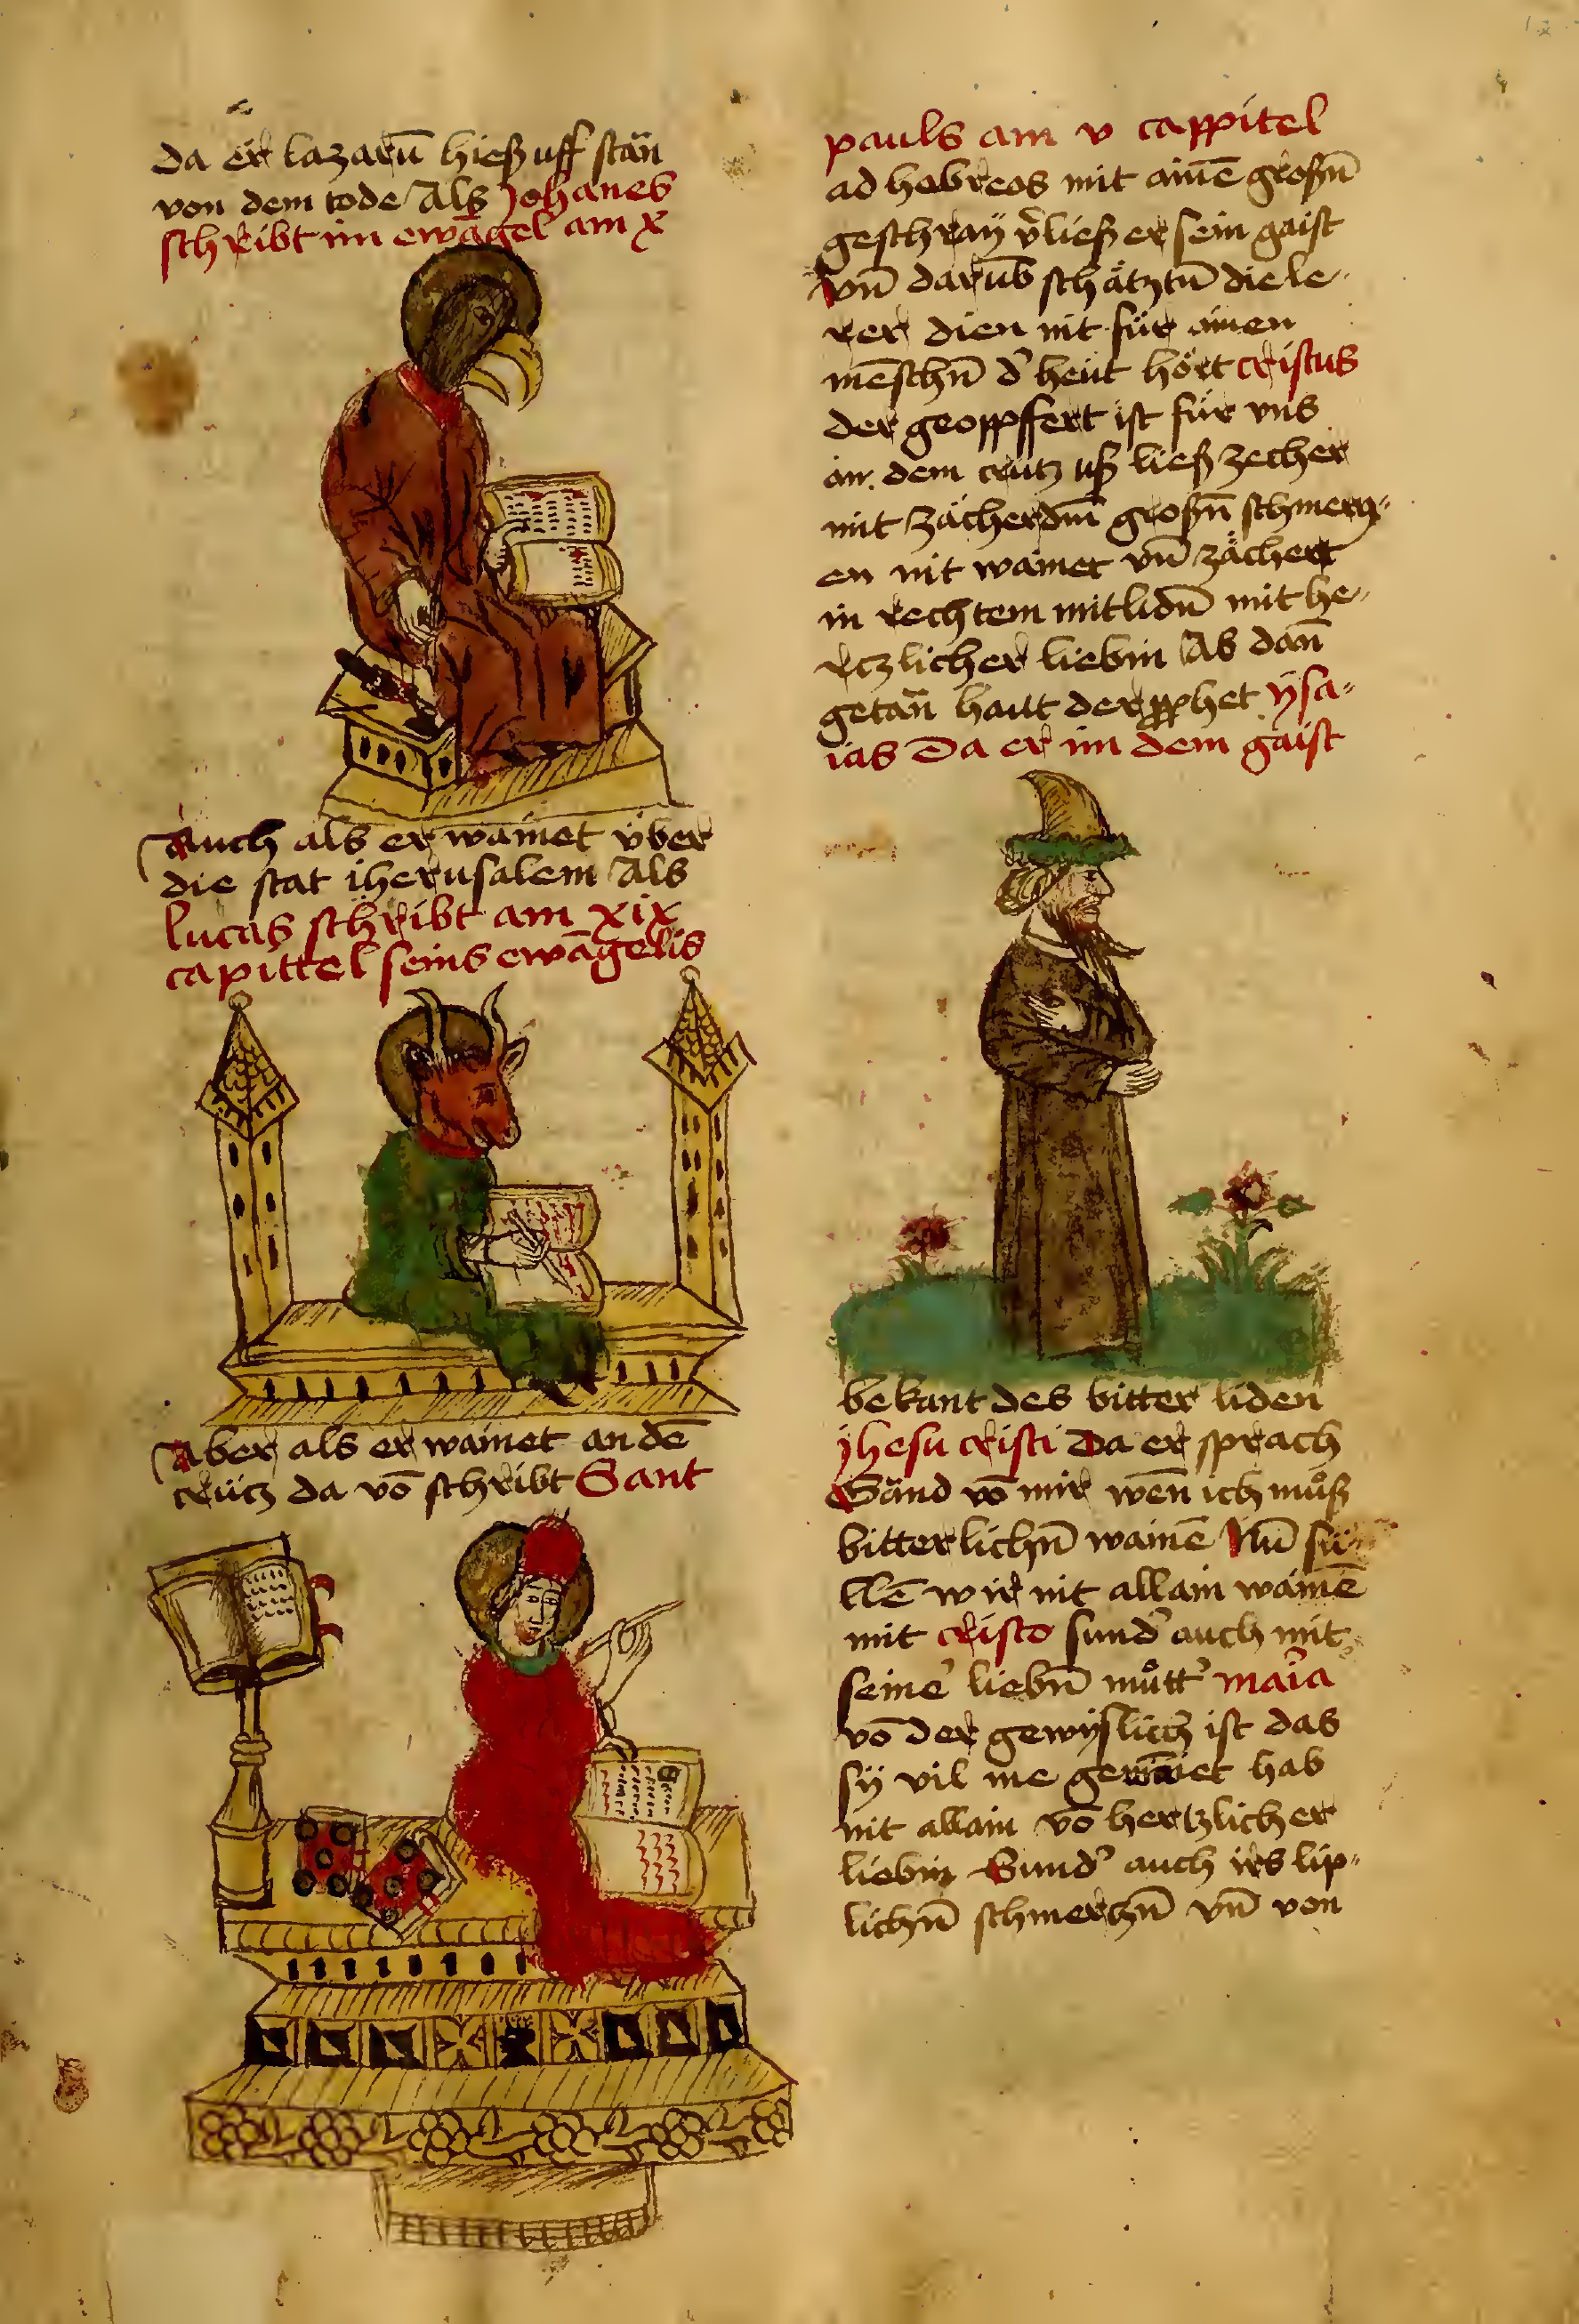 Da er lazarū hieß uff stän
von dem tode Als Johanes
schribt im ewāgel am x
Auch als er wainet über
die stat iherusalem Als
lucas schribt am xix
capittel seins ewāgelis
Aber als er wainet an dē
crütz da vō schribt Sant
pauls am v cappitel
ad hebreos mit ainē großn̄
geschraÿ v̓ließ er sein gaist
vn̄ darūb schätztn̄ die le-
rer dien nit für ainen
mēschn̄ d̓ heüt hört cristus
der geoppffert ist für vns
an dem crütz uß ließ zecher
mit großn̄ schmertz-
en nit wainet vn̄ zächert
in rechtem mitlidn̄ mit he-
rtzlicher liebin As dan̄
getän haut der pphet ÿsa-
ias Da er im dem gaist
bekant des bitter liden
jhesu cristi Da er sprach
Gänd vō mir wēn ich můß
bitterlichn̄ wainē Nu̅ sü-
llē wir nit allain wainē
mit cristo sund̓ auch mit
seine̓ liebn̄ můtt̓ mar̓ia
vō der gewÿslich ist das
sÿ vil me gewainet hab
nit allain vō hertzlicher
liebin Sund̓ auch irs lip-
lichn̄ schmertzn̄ vn̄ von